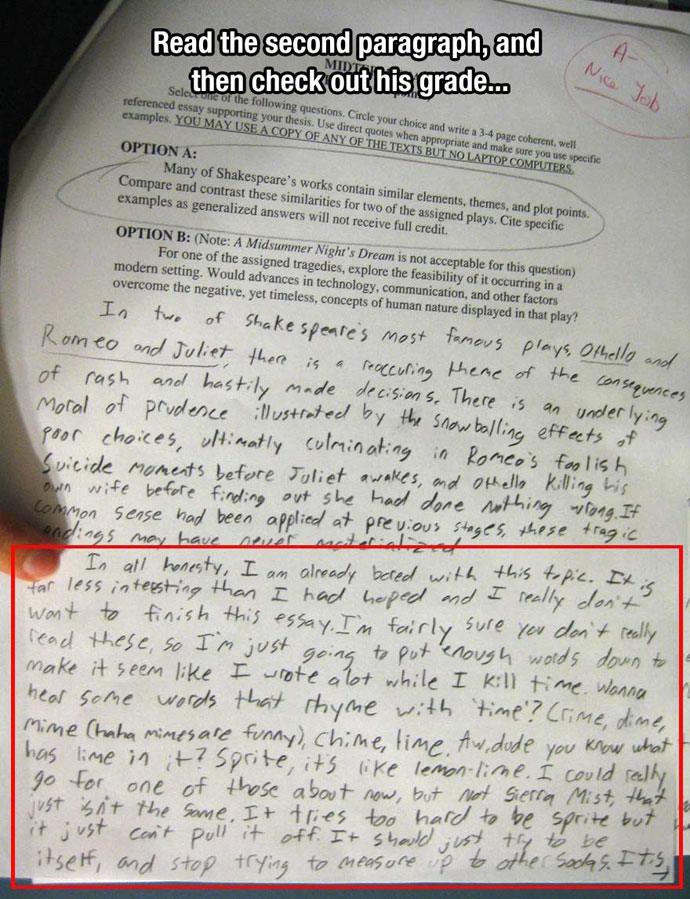 Read the second paragraph, and
then check out his grade...
A-
Nice Job
Select one of the following questions. Circle your choice and write a 3-4 page coherent, well
referenced essay supporting your thesis. Use direct quotes when appropriate and make sure you use specific
examples. YOU MAY USE A COPY OF ANY OF THE TEXTS BUT NO LAPTOP COMPUTERS.
OPTION A:
Many of Shakespeare's works contain similar elements, themes, and plot points.
Compare and contrast these similarities for two of the assigned plays. Cite specific
examples as generalized answers will not receive full credit.
OPTION B: (Note: A Midsummer Night's Dream is not acceptable for this question)
For one of the assigned tragedies, explore the feasibility of it occurring in a
modern setting. Would advances in technology, communication, and other factors
overcome the negative, yet timeless, concepts of human nature displayed in that play?
In two of Shakespeare's most famous plays, Othello and
Romeo and Juliet, there is a reoccuring theme of the consequences
of rash and hastily made decisions. There is an underlying
moral of prudence illustrated by the snowballing effects of
poor choices, ultimatly culminating in Romeo's foolish
suicide moments before Juliet awakes, and Othello killing his
own wife before finding out she had done nothing wrong. If
common sense had been applied at previous stages, these tragic
endings may have never materialized
In all honesty, I am already bored with this topic. It is
far less intersting than I had hoped and I really don't
want to finish this essay. I'm fairly sure you don't really
read these, so I'm just going to put enough words down to
make it seem like I wrote alot while I kill time. Wanna
hear some words that rhyme with 'time'? Crime, dime,
mime (haha mimes are funny), chime, lime. Aw, dude you know what
has lime in it? Sprite, it's like lemon-lime. I could really
go for one of those about now, but not Sierra Mist, that
just isn't the same. It tries too hard to be sprite but
it just can't pull it off. It should just try to be
itself, and stop trying to measure up to other sodas. It is